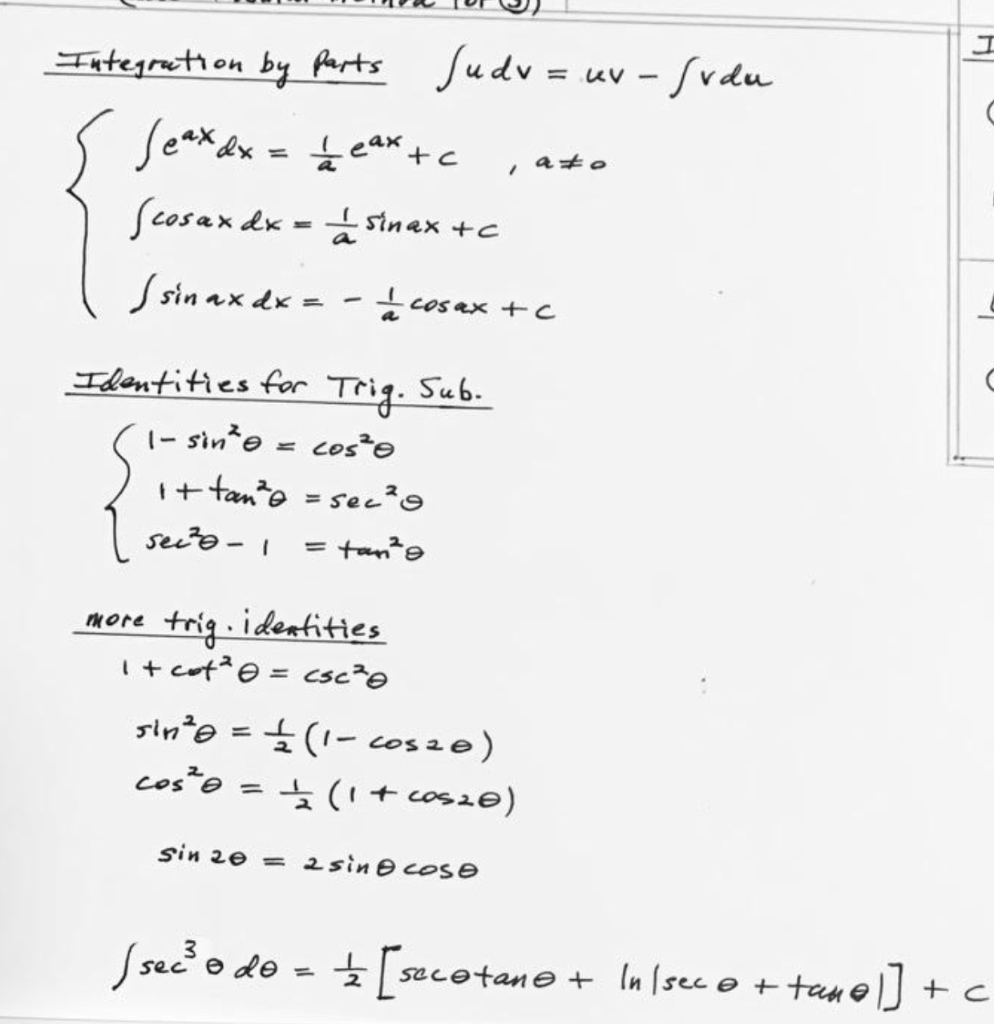 Integration by Parts ∫udv = uv - ∫vdu
∫e^{ax}dx = 1/a e^{ax} + c , a≠0
∫cosax dx = 1/a sinax + c
∫sin ax dx = - 1/a cosax + c
Identities for Trig. Sub.
1 - sin²θ = cos²θ
1 + tan²θ = sec²θ
sec²θ - 1 = tan²θ
more trig. identities
1 + cot²θ = csc²θ
sin²θ = 1/2 (1 - cos2θ)
cos²θ = 1/2 (1 + cos2θ)
sin 2θ = 2 sinθ cosθ
∫sec³θ dθ = 1/2 [secθtanθ + ln|secθ + tanθ|] + c